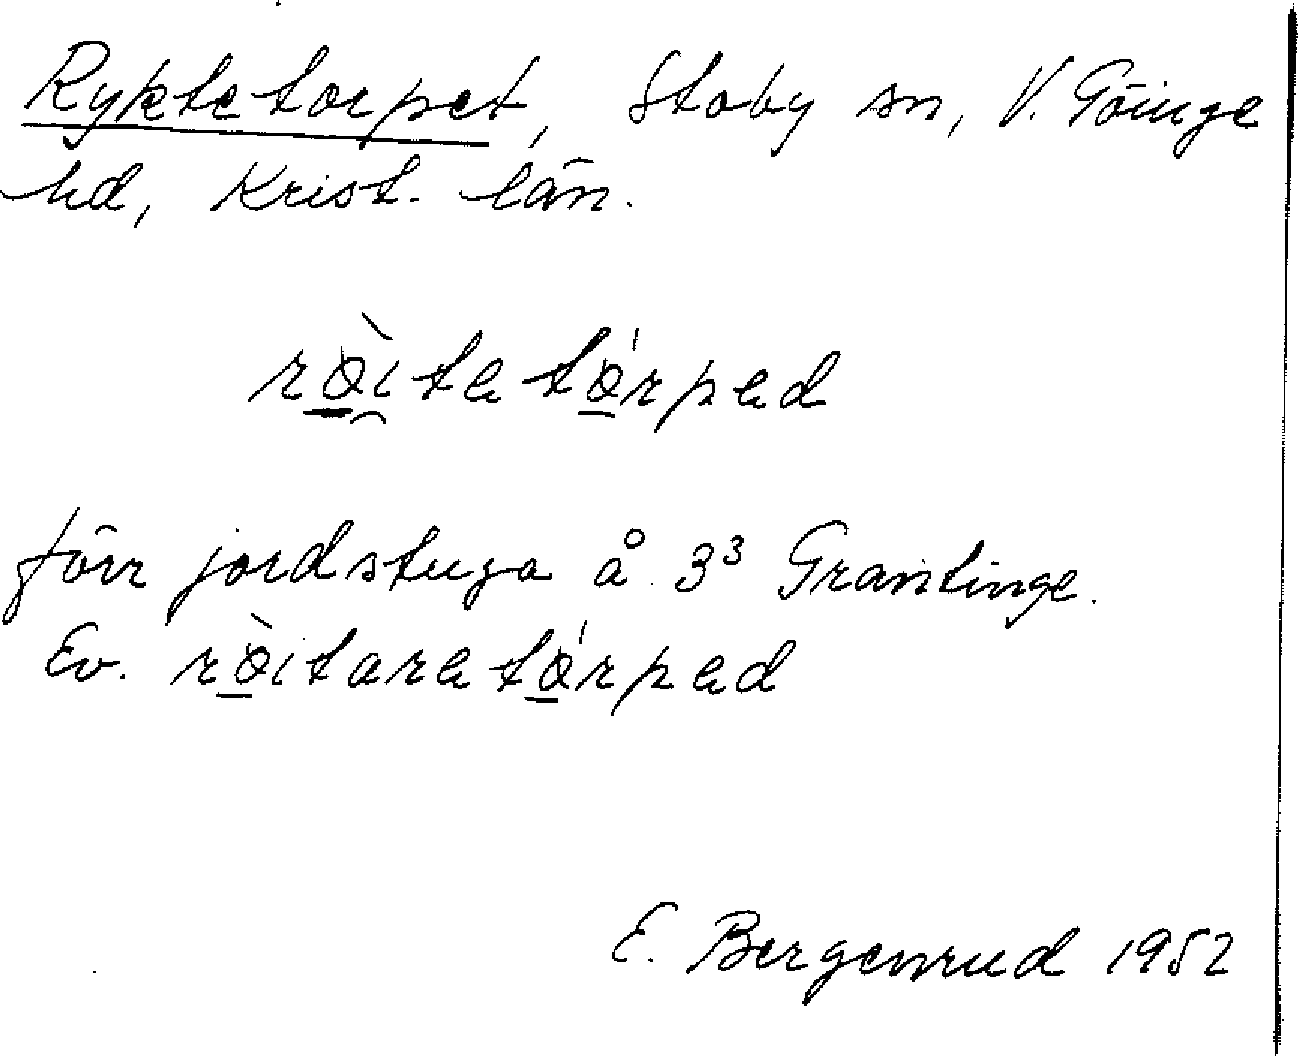 Ryktetorpet, Stoby sn, V. Göinge
hd, Krist. län.
rø̀i̯tetǿrped
förr jordstuga å 3³ Grantinge.
Ev. rø̀itaretǿrped
E. Bergenrud 1952